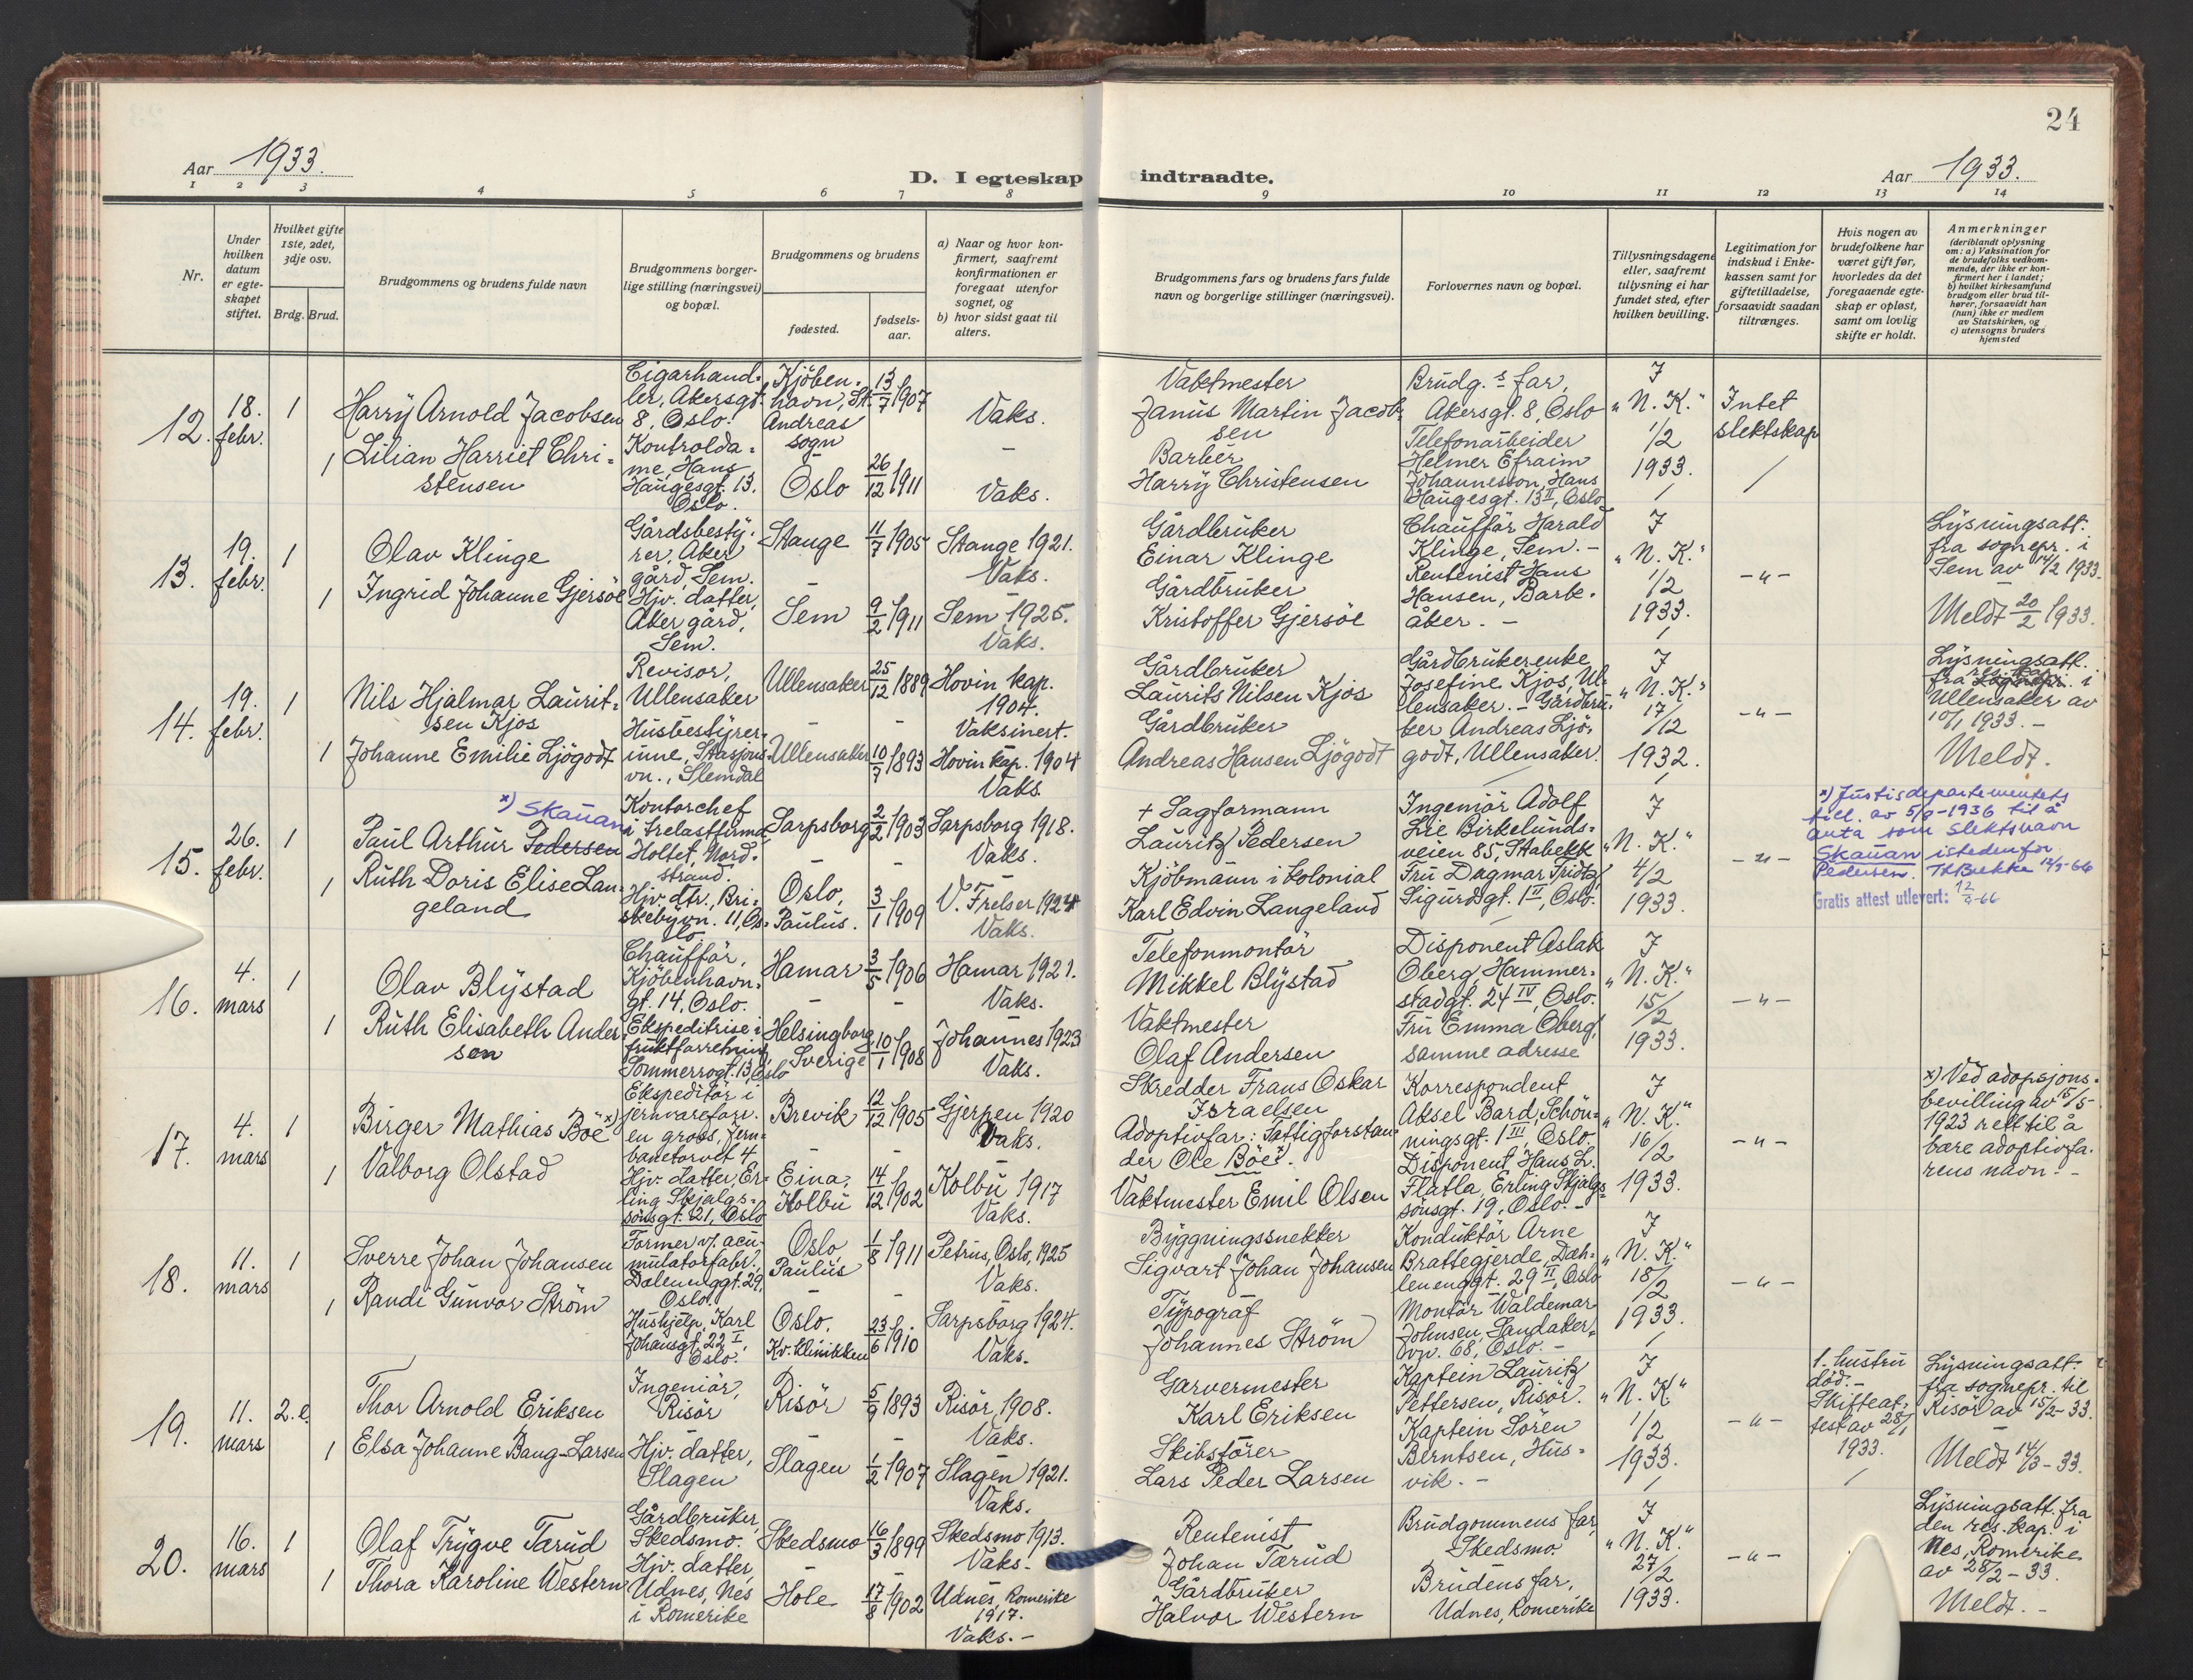 24
Aar 1933.
D. I egteskap indtraadte.
Aar 1933.
1 2 3 4 5 6 7 8 9 10 11 12 13 14
Nr.
Under hvilken datum er egteskapet stiftet.
Hvilket gifte 1ste, 2det, 3dje osv.
Brdg. Brud.
Brudgommens og brudens fulde navn
Brudgommens borgerlige stilling (næringsvei) og bopæl.
Brudgommens og brudens
fødested.
fødselsaar.
a) Naar og hvor konfirmert, saafremt konfirmationen er foregaat utenfor sognet, og
b) hvor sidst gaat til alters.
Brudgommens fars og brudens fars fulde navn og borgerlige stillinger (næringsvei).
Forlovernes navn og bopæl.
Tillysningsdagene eller, saafremt tillysning ei har fundet sted, efter hvilken bevilling.
Legitimation for indskud i Enkekassen samt for giftetilladelse, forsaavidt saadan tiltrænges.
Hvis nogen av brudefolkene har været gift før, hvorledes da det foregaaende egteskap er opløst, samt om lovlig skifte er holdt.
Anmerkninger
(deriblandt oplysning om: a) Vaksination for de brudefolks vedkommende, der ikke er konfirmert her i landet; b) hvilket kirkesamfund brudgom eller brud tilhører, forsaavidt han (hun) ikke er medlem av Statskirken, og c) utensogns bruders hjemsted
12. 18. febr. 1
Harry Arnold Jacobsen
Cigarhandler, Akersgt. 8, Oslo.
Kjöbenhavn, St. Andreas sogn
13/7 1907
Vaks.
Vaktmester
Janus Martin Jacobsen
Brudg.s far, Akersgt. 8, Oslo
I "N. K." 1/2 1933.
Intet slektskap
1 Lilian Harriet Christensen
Kontroldame, Hans Haugesgt. 13. Oslo.
Oslo
26/12 1911
Vaks.
Barber
Harry Christensen
Telefonarbeider Helmer Efraim Johannesson, Hans Haugesgt. 13 II, Oslo
13. 19. febr. 1
Olav Klinge
Gårdsbestyrer, Aker gård, Sem.
Stange
11/7 1905
Stange 1921.
Vaks.
Gårdbruker
Einar Klinge
Chaufför Harald Klinge, Sem. -
I "N. K." 1/2 1933.
- " -
Lysningsatt. fra sognepr. i Sem av 14/2 1933.
Meldt 20/2 1933.
1 Ingrid Johanne Gjersöe
Hjv. datter, Aker gård, Sem.
Sem
9/2 1911
Sem 1925.
Vaks.
Gårdbruker
Kristoffer Gjersöe
Rentenist Hans Hansen, Barkåker. -
14. 19. febr. 1
Nils Hjalmar Lauritsen Kjos
Revisor, Ullensaker
Ullensaker
25/12 1889
Hovin kap. 1904.
Vaksinert.
Gårdbruker
Laurits Nilsen Kjos
Gårdbrukerenke Josefine Kjos, Ullensaker. -
I "N. K." 17/12 1932.
- " -
Lysningsatt. fra i Ullensaker av 10/1 1933. -
Meldt.
1 Johanne Emilie Ljögodt
Husbestyrerinne, Stasjonsvn., Slemdal
Ullensaker
10/7 1893
Hovin kap. 1904
Vaks.
Gårdbruker
Andreas Hansen Ljögodt
Gårdbruker Andreas Ljögodt, Ullensaker.
15. 26. febr. 1
x) Skauan
Paul Arthur Pedersen
Kontorchef i trelastfirma, Holtet, Nordstrand.
Sarpsborg
2/2 1903
Sarpsborg 1918.
Vaks.
+ Sagformann
Lauritz Pedersen
Ingeniör Adolf Lie Birkelundsveien 85, Stabekk
I "N. K." 4/2 1933.
- " -
x) Justisdepartementets till. av 5/9-1936 til å anta som slektsnavn Skauan istedenfor Pedersen.
Gratis attest utlevert: 12/5-66
1 Ruth Doris Elise Langeland
Hjv. dtr., Briskebyvn. 11, Oslo
Oslo, Paulus.
3/1 1909
V. Frelser 1924
Vaks.
Kjöbmann i kolonial
Karl Edvin Langeland
Fru Dagmar Sigurdsgt. 1 II, Oslo.
16. 4. mars 1
Olav Blystad
Chaufför, Kjöbenhavngt. 14, Oslo.
Hamar
3/5 1906
Hamar 1921.
Vaks.
Telefonmontör
Mikkel Blystad
Disponent Aslak Oberg, Hammerstadgt. 24 IV, Oslo.
I "N. K." 15/2 1933.
- " -
1 Ruth Elisabeth Andersen
Ekspeditrise i fruktforretning Sommerrogt. 13, Oslo
Helsingborg, Sverige
10/1 1908
Johannes 1923
Vaks.
Vaktmester
Olaf Andersen
Fru Emma Oberg, samme adresse
17. 4. mars 1
Birger Mathias Böe x)
Ekspeditör i jernvareforr. en gros, Jernbanetorvet 4.
Brevik
12/12 1905
Gjerpen 1920
Vaks.
Skredder Frans Oskar Israelsen
Adoptivfar: Fattigforstander Ole Böe.
Korrespondent Aksel Bard, Schönningsgt. 1 III, Oslo.
I "N. K." 16/2 1933.
- " -
x) Ved adopsjonsbevilling av 15/5-1923 rett til å bære adoptivfarens navn. -
1 Valborg Olstad
Hjv. datter, Erling Skjalgssönsgt. 21, Oslo
Eina, Kolbu
14/12 1902
Kolbu 1917
Vaks.
Vaktmester Emil Olsen
Disponent Hans L. Flatla, Erling Skjalgssönsgt. 19, Oslo. -
18. 11. mars 1
Sverre Johan Johansen
Former v/. acumulatorfabr., Dælenenggt. 29, Oslo.
Oslo, Paulus
1/8 1911
Petrus, Oslo, 1925
Vaks.
Byggningssnekker
Sigvart Johan Johansen
Konduktör Arne Brattegjerde, Dælenenggt. 29 II, Oslo
I "N. K." 18/2 1933.
- " -
1 Randi Gunvor Ström
Hushjelp, Karl Johansgt. 22 I, Oslo.
Oslo, Kv. klinikken
23/6 1910
Sarpsborg 1924.
Vaks.
Typograf
Johannes Ström
Montör Waldemar Johnsen, Sandakervn. 68, Oslo. -
19. 11. mars 2. e.
Thor Arnold Eriksen
Ingeniör, Risör
Risör
5/9 1893
Risör 1908.
Vaks.
Garvermester
Karl Eriksen
Kaptein Lauritz Pettersen, Risör.
I "N. K" 1/2 1933.
- " -
1. hustru död. - Skifteattest av 28/1 1933.
Lysningsatt. fra sognepr. til Risör av 15/2-33.
Meldt 14/3-33.
1 Elsa Johanne Baug-Larsen
Hjv. datter, Slagen
Slagen
1/2 1907
Slagen 1921.
Vaks.
Skibsförer
Lars Peder Larsen
Kaptein Sören Berntsen, Husvik. -
20. 16. mars 1
Olaf Trygve Tærud
Gårdbruker, Skedsmo.
Skedsmo
16/3 1899
Skedsmo 1913.
Vaks.
Rentenist
Johan Tærud
Brudgommens far, Skedsmo.
I "N. K." 27/2 1933.
- " -
Lysningsatt. fra den res. kap. i Nes, Romerike av 28/2-33.
Meldt. -
1 Thora Karoline Western
Hjv. datter, Udnes, Nes i Romerike
Hole
17/8 1902
Udnes, Romerike 1917.
Vaks. -
Gårdbruker
Halvor Western
Brudens far, Udnes, Romerike